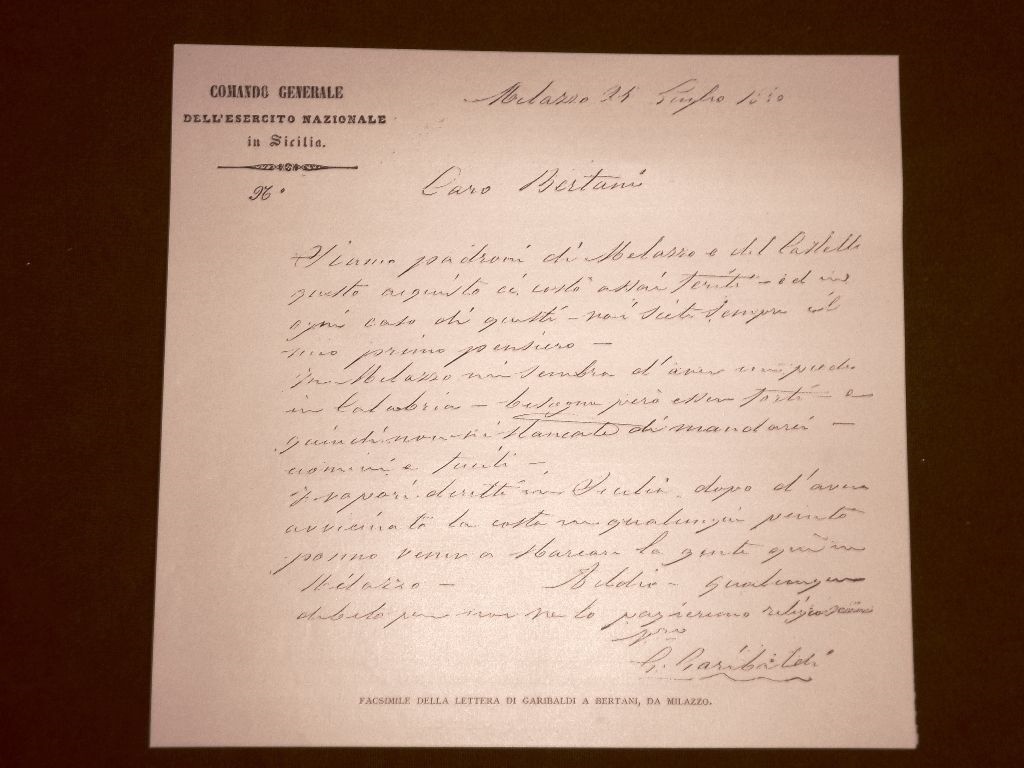 COMANDO GENERALE
DELL'ESERCITO NAZIONALE
in Sicilia.
N.°
Melazzo 25 Luglio 1860
Caro Bertani
Siamo padroni di Melazzo e del Castello
questo acquisto ci costò assai feriti - ed in
ogni caso di questi - voi siete sempre il
mio primo pensiero -
In Melazzo mi sembra d'aver un piede
in Calabria - bisogna però esser forti - e
quindi non vi stancate di mandarci -
uomini e fucili -
I vapori diretti in Sicilia, dopo d'aver
avvicinato la costa in qualunque punto
ponno venir a sbarcare la gente qui in
Melazzo - Addio - qualunque
debito per noi ve lo pagheremo religiosamente
Vro
G. Garibaldi
FACSIMILE DELLA LETTERA DI GARIBALDI A BERTANI, DA MILAZZO.